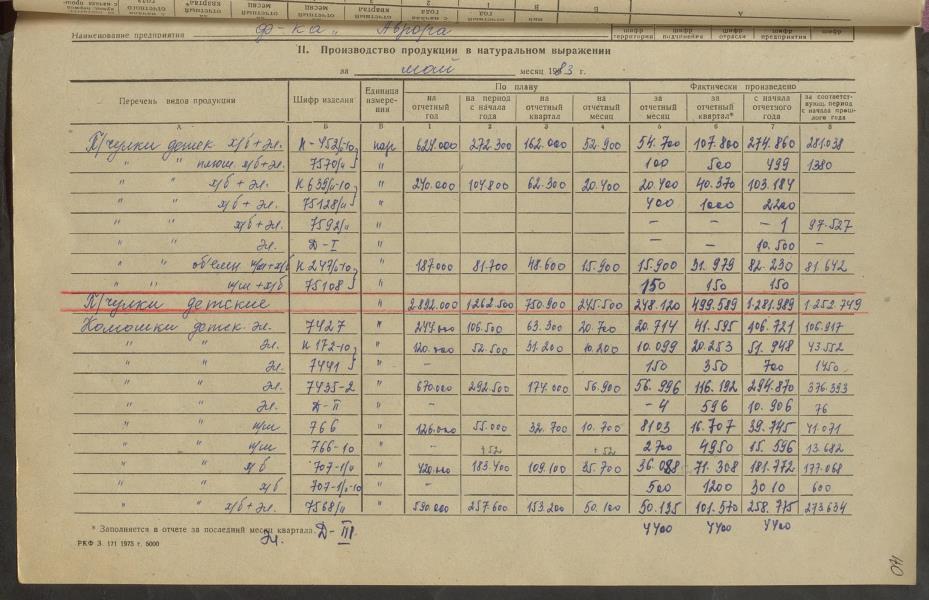 Наименование предприятия ф-ка „Аврора
шифр территории шифр подчинения шифр отрасли шифр предприятия шифр
II. Производство продукции в натуральном выражении
за май месяц 1983 г.
Перечень видов продукции Шифр изделия Единица измере-ния По плану Фактически произведено
на отчетный год на период с начала года на отчетный квартал на отчетный месяц за отчетный месяц за отчетный квартал* с начала отчетного года за соответствующ. период с начала прошлого года
А Б В 1 2 3 4 5 6 7 8
П/чулки детск х/б + эл. пар 624.000 272.300 162.000 52.900 54.700 107.800 274.860 281.038
" " плюш. х/б+эл. 7570/ц " 100 500 499 1380
" " х/б + эл. К 639/6-10 " 240.000 104.800 62.300 20.400 20.400 40.370 103.184
" " х/б + эл. 75128/ц " 400 1000 2200
" " х/б+эл. 7592/ц " – – – 1 97.527
" " эл. Д-I " – – 10.500 –
" " объемн п/ш+х/б К 247/6-10 " 187000 81.700 48.600 15.900 15.900 31.979 82.230 81.642
" " п/ш + х/б 75108 " 150 150 150
П/чулки детские " 2.892.000 1.262.500 750.900 245.500 248.120 499.589 1.281.989 1.252.749
Колготки детск. эл. 7427 " 244.000 106.500 63.300 20.700 20.714 41.595 106.721 106.917
" " эл. К 172-10 " 120.000 52.500 31.200 10.200 10.099 20.253 51.948 43.552
" " эл. 7441 " – 150 350 700 1450
" " эл. 7435-2 " 670.000 292.500 174.000 56.900 56.996 116.192 294.870 376.393
" " эл. Д-II " – – 4 596 10.906 76
" " п/ш 766 " 126.000 55.000 32.700 10.700 8103 16.707 39.745 41.071
" " п/ш 766-10 " – +52 +52 2700 4950 15.596 13.682
" " х/б 707-1/ц " 420.000 183.400 109.100 35.700 36.088 71.308 181.772 177.068
" " х/б 707-1/ц-10 " 500 1200 3010 600
" " х/б+эл. 7568/ц " 590.000 257.600 153.200 50.100 50.135 101.570 258.775 273.634
* Заполняется в отчете за последний месяц квартала.
эл. Д-III 4400 4400 4400
РКФ З. 171 1975 г. 5000